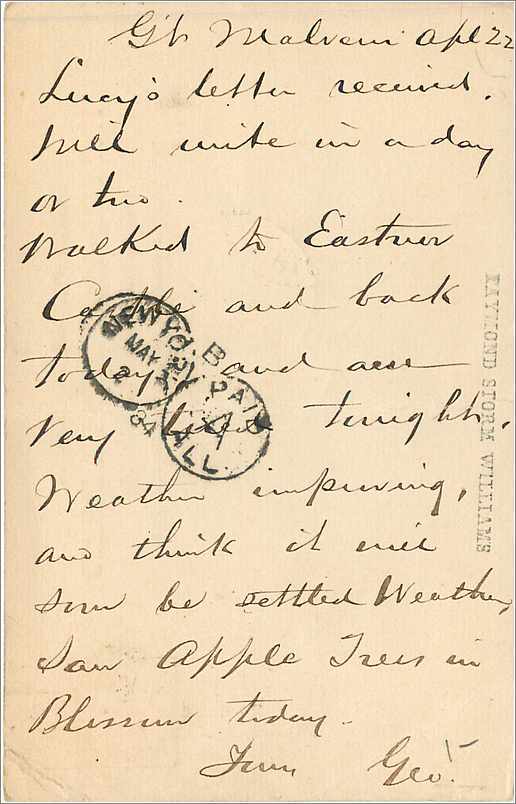 Gt Malvern Apl 22
Lucy's letter received.
Will write in a day
or two.
Walked to Eastnor
Castle and back
today and am
very tired tonight.
Weather improving,
and think it will
soon be settled Weather,
Saw Apple Trees in
Blossom today.
Geo.
NEW YORK
MAY
84
PAID
ALL
RAYMOND STORM WILLIAMS